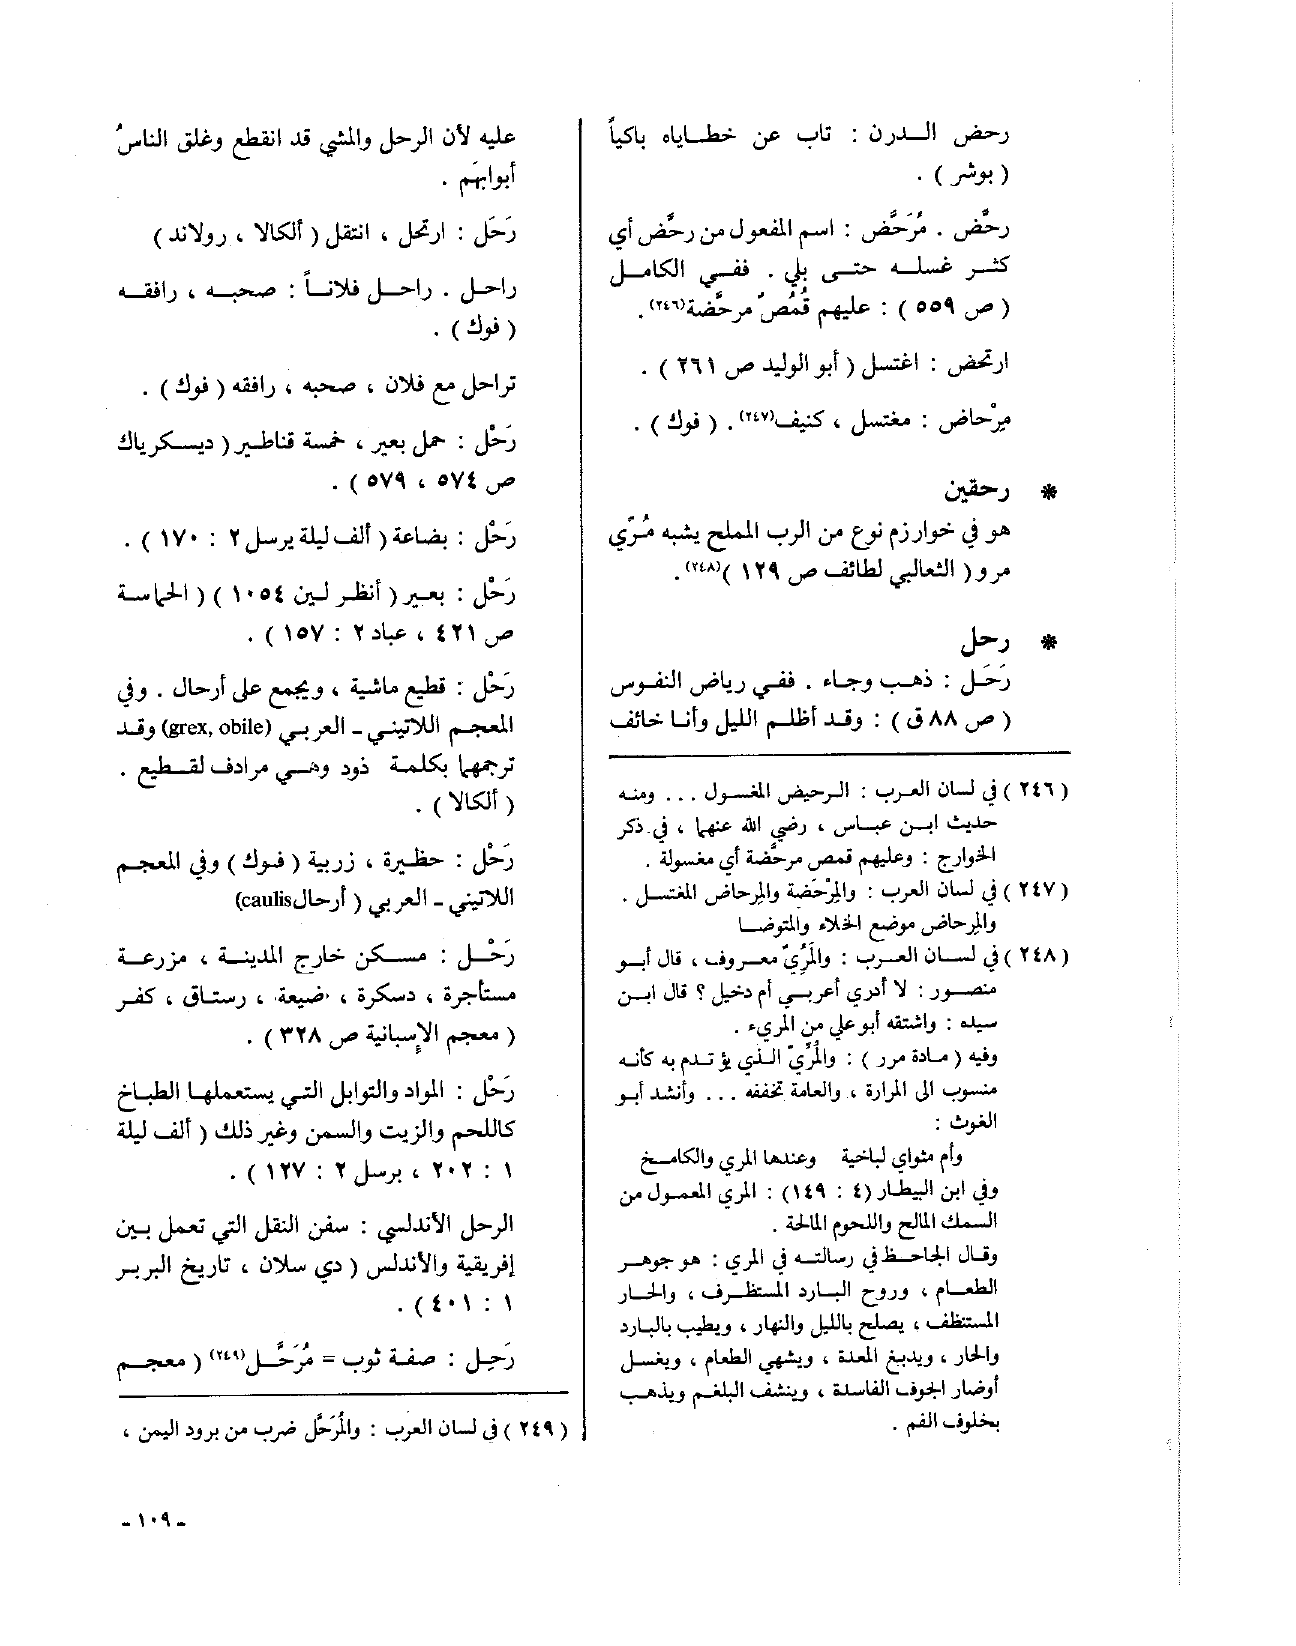 رحض الـدرن : تاب عن خطـاياه باكياً
( بوشر ) .
رحَّض . مُرَحَّض : اسم المفعول من رحَّض أي
كثـر غسلـه حتـى بلي . ففـي الكامـل
( ص ٥٥٩ ) : عليهم قُمُصٌ مرحَّضة(٢٤٦) .
ارتحض : اغتسل ( أبو الوليد ص ٢٦١ ) .
مِرْحاض : مغتسل ، كنيف(٢٤٧) . ( فوك ) .
* رحقين
هو في خوارزم نوع من الرب المملح يشبه مُرّي
مرو ( الثعالبي لطائف ص ١٢٩ )(٢٤٨) .
* رحل
رَحَـل : ذهـب وجـاء . ففـي رياض النفـوس
( ص ٨٨ ق ) : وقـد أظلـم الليل وأنـا خائف
( ٢٤٦ ) في لسان العرب : الـرحيض المغسول ... ومنه
حديث ابـن عبـاس ، رضي الله عنهما ، في ذكر
الخوارج : وعليهم قمص مرحَّضة أي مغسولة .
( ٢٤٧ ) في لسان العرب : والمِرْحَضة والمرحاض المغتسل .
والمرحاض موضع الخلاء والمتوضـا
( ٢٤٨ ) في لسـان العـرب : والمُرِّيّ معـروف ، قال أبـو
منصـور : لا أدري أعربـي أم دخيل ؟ قال ابـن
سيده : واشتقه أبو علي من المريء .
وفيه ( مـادة مرر ) : والمُرِّيّ الـذي يؤ تـدم به كأنـه
منسوب الى المرارة ، والعامة تخففه ... وأنشد أبـو
الغوث :
وأم مثواي لباخية وعندها المري والكامـخ
وفي ابن البيطار (٤ : ١٤٩) : المري المعمول من
السمك المالح واللحوم المالحة .
وقـال الجاحـظ في رسالتـه في المري : هو جوهـر
الطعـام ، وروح البـارد المستظـرف ، والحـار
المستنظف ، يصلح بالليل والنهار ، ويطيب بالبارد
والحار ، ويدبغ المعدة ، ويشهي الطعام ، ويغسل
أوضار الجوف الفاسدة ، وينشف البلغم ويذهـب
بخلوف الفم .
عليه لأن الرحل والمشي قد انقطع وغلق الناسُ
أبوابَهم .
رَحَل : ارتحل ، انتقل ( ألكالا ، رولاند )
راحـل . راحـل فلانـاً : صحبـه ، رافقـه
( فوك ) .
تراحل مع فلان ، صحبه ، رافقه ( فوك ) .
رَحْل : حمل بعير ، خمسة قناطير ( ديـسكرياك
ص ٥٧٤ ، ٥٧٩ ) .
رَحْل : بضاعة ( ألف ليلة برسل ٢ : ١٧٠ ) .
رَحْل : بعيـر ( أنظـر لـين ١٠٥٤ ) ( الحماسـة
ص ٤٢١ ، عباد ٢ : ١٥٧ ) .
رَحْل : قطيع ماشية ، ويجمع على أرحال . وفي
المعجم اللاتيني ـ العربـي (grex, obile) وقـد
ترجمها بكلمـة ذود وهـي مرادف لقـطيع .
( ألكالا ) .
رَحْل : حظيرة ، زريبة ( فـوك ) وفي المعجـم
اللاتيني ـ العربي ( أرحالcaulis)
رَحْـل : مسـكن خارج المدينـة ، مزرعـة
مستأجرة ، دسكرة ، ضيعة ، رستاق ، كفـر
( معجم الإسبانية ص ٣٢٨ ) .
رَحْل : المواد والتوابل التـي يستعملهـا الطباخ
كاللحم والزيت والسمن وغير ذلك ( ألف ليلة
١ : ٢٠٢ ، برسل ٢ : ١٢٧ ) .
الرحل الأندلسي : سفن النقل التي تعمل بـين
إفريقية والأندلس ( دي سلان ، تاريخ البربـر
١ : ٤٠١ ) .
رَحِـل : صفـة ثوب = مُرَحَّـل(٢٤٩) ( معجـم
( ٢٤٩ ) في لسان العرب : والمُرَحَّل ضرب من برود اليمن ،
ـ ١٠٩ ـ